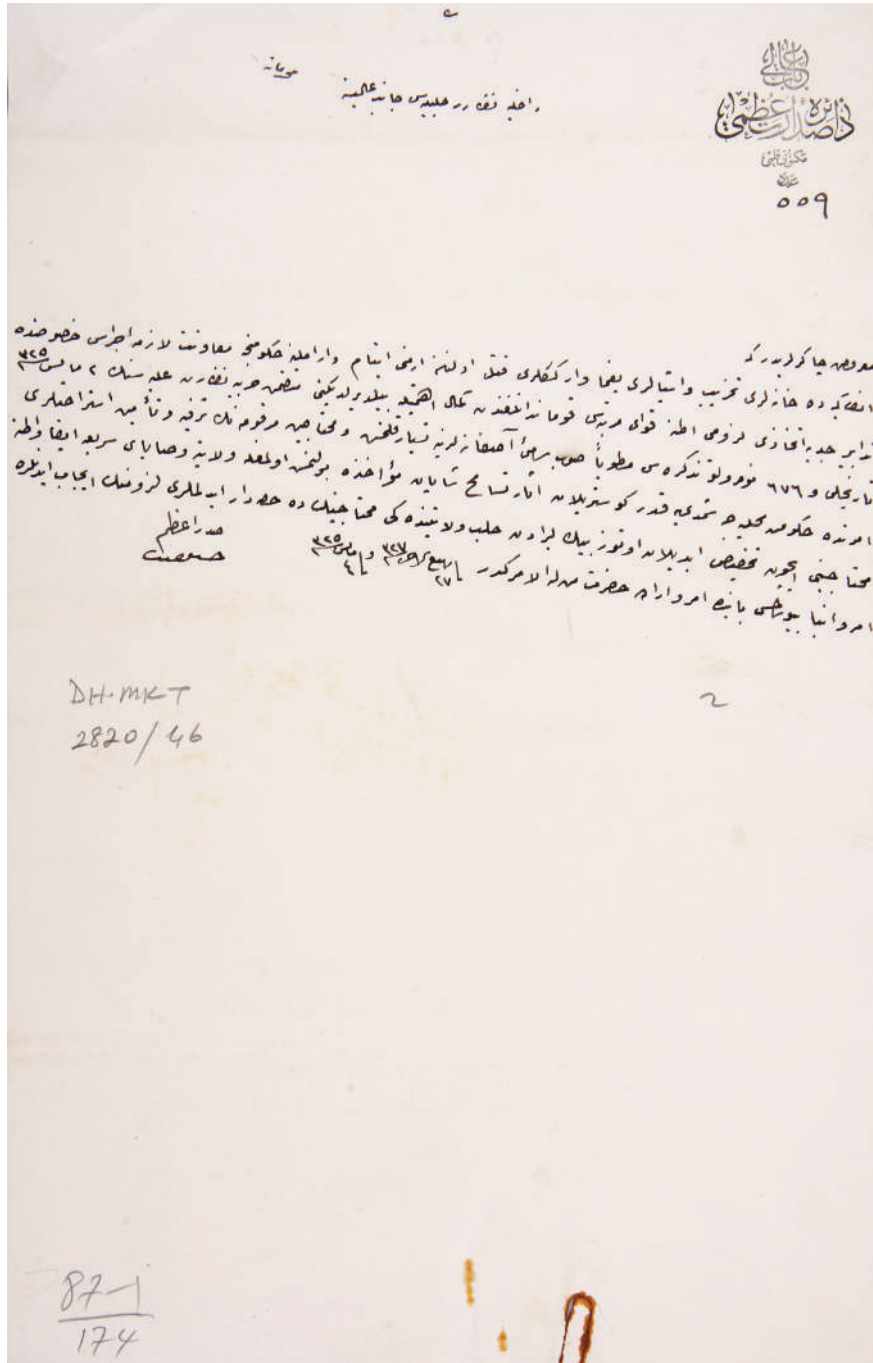 باب عالی
دائرهٔ صدارت عظمی
مکتوبی قلمی
عدد
٥٥٩
داخلیه نظارت جلیله‌سی جانب عالیسنه
محرمانه
معروض چاکرلریدر که
انطاکیه ده خانه‌لری تخریب و اشیالری یغما و ارککلری قتل اولنان ارمنی ایتام و اراملنه حکومتجه معاونت لازمه اجراسی خصوصنده
تدابیر جدیه اتخاذی لزومی اطنه قوای مرتبه‌سی قوماندانلغندن کمال اهمیتله بیلدیرلدیکنی متضمن حربیه نظارت علیه‌سنك ٢ مایس ٣٢٥
تاریخلی و ٦٧٦ نومرولو تذکره‌سی مطویاً صوب سامئ آصفانه‌لرینه تسیار قلنمش و محتاجین مرقومه‌نك ترفیه و تأمین استراحتلری
امرنده حکومت محلیه‌جه شمدی‌یه قدر کوستریلان آثار تسامح شایان مؤاخذه بولنمش اولمغله ولایته وصایای سریعه ایفاسی و اطنه
محتاجینی ایچون تخصیص ایدیلان اوتوز بیك لیرادن حلب ولایتنده کی محتاجینك ده حصه‌دار ایدلملری لزومنك ایجاب ایدنلره
امر و انبا بیورلمسی بابنده امر و اراده حضرت من له الامرکدر
فی ٢٧ ربیع الآخر ٣٢٧ و فی ٤ مایس ٣٢٥
صدر اعظم
DH.MKT
2820/46
2
87-1
174